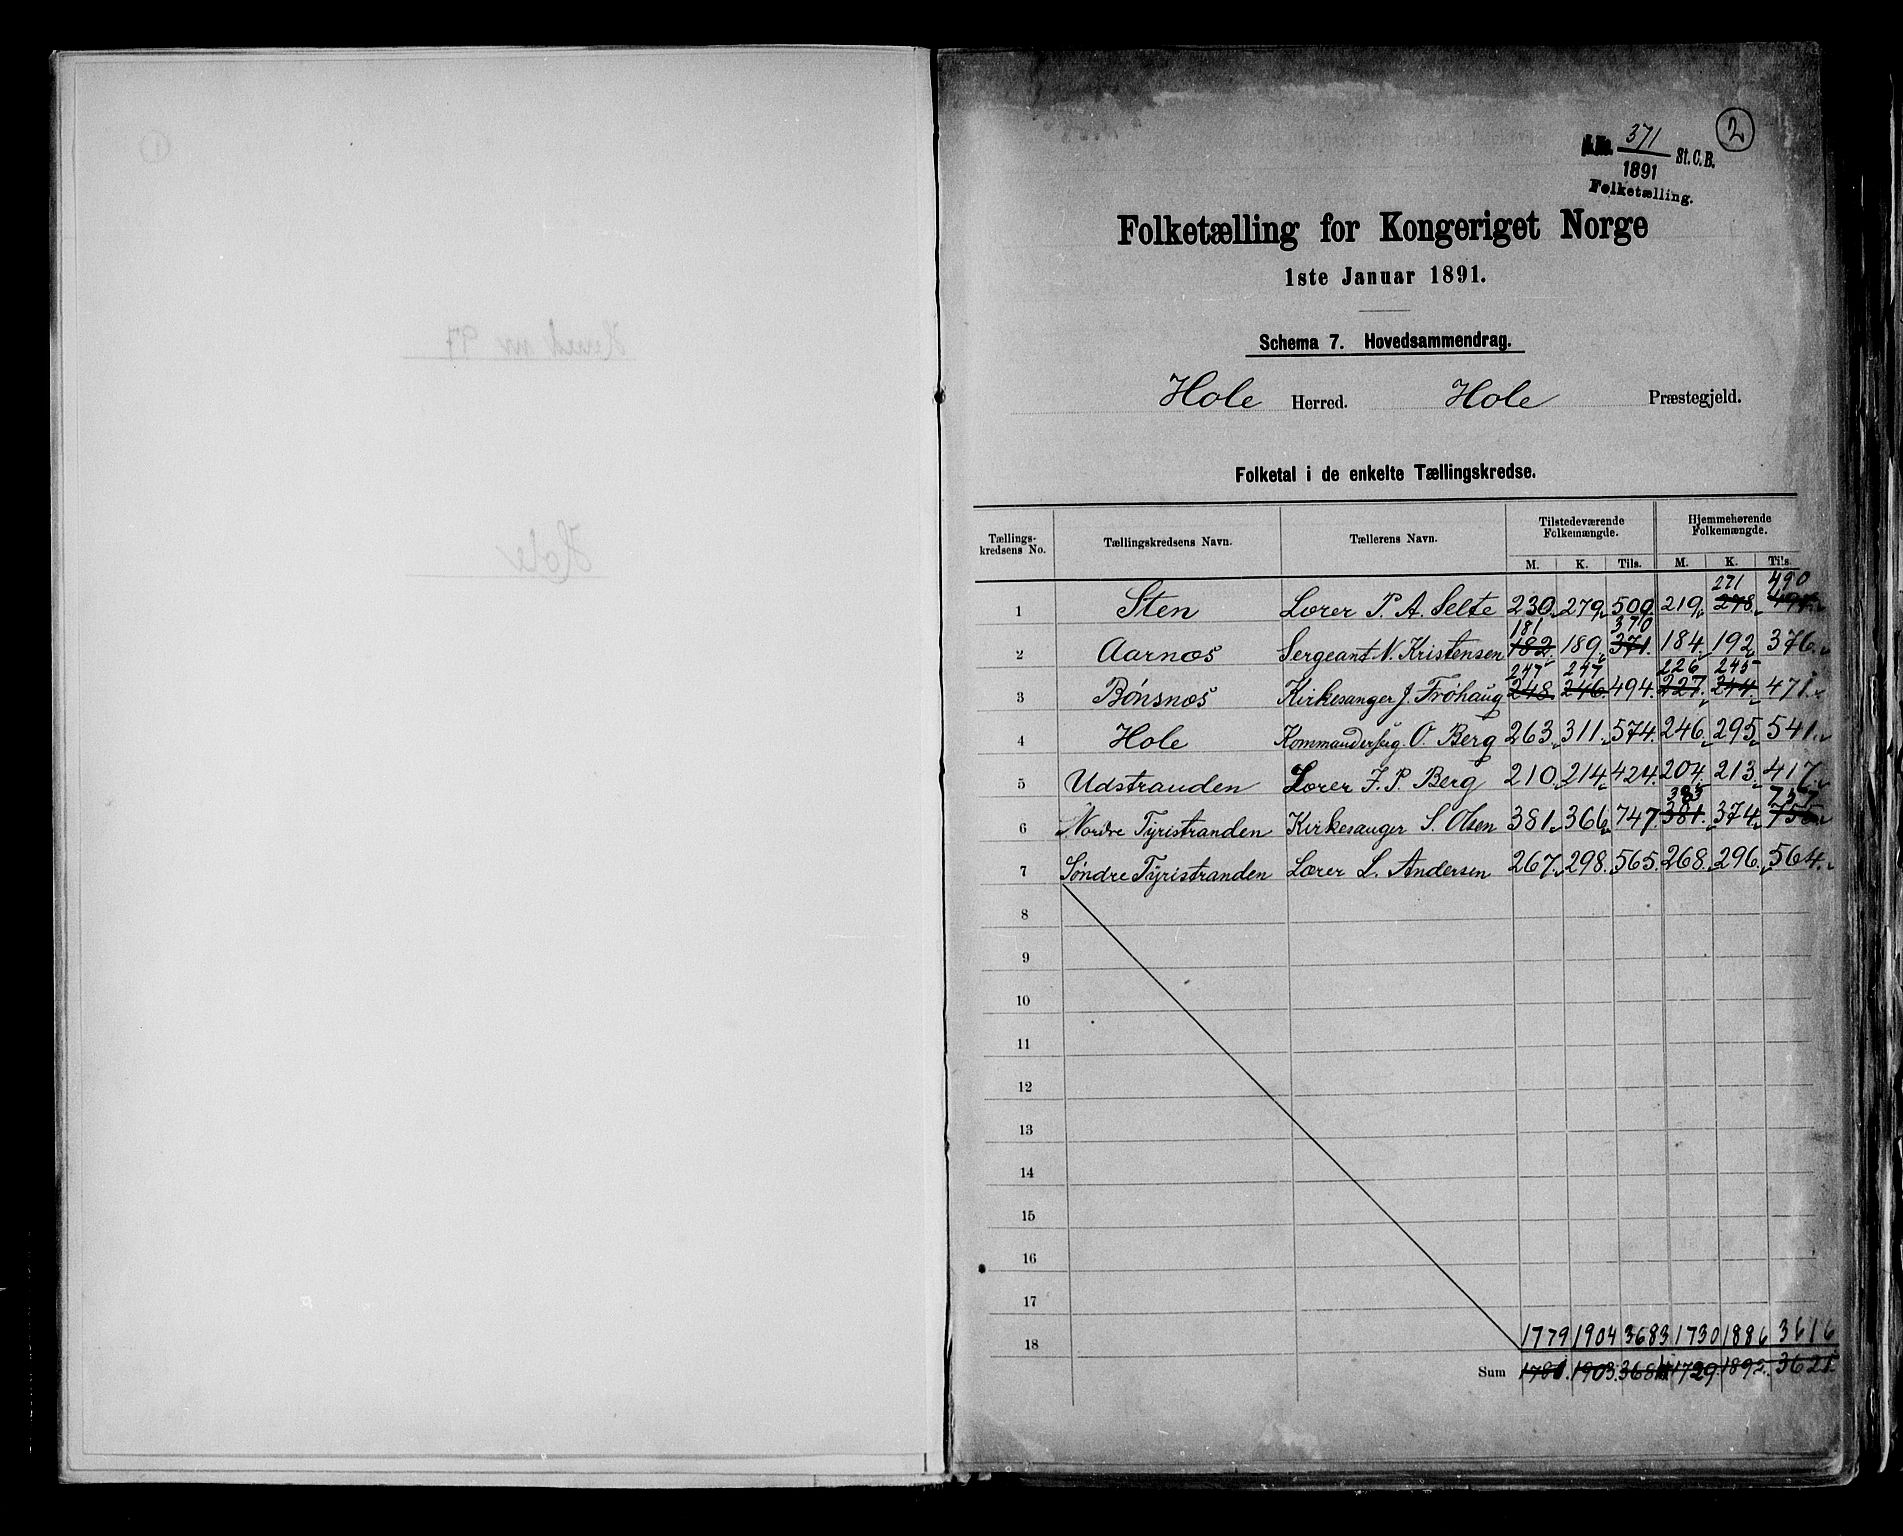 2
371
1891 St. C. B.
Folketælling.
Folketælling for Kongeriget Norge
1ste Januar 1891.
Schema 7. Hovedsammendrag.
Hole Herred. Hole Præstegjeld.
Folketal i de enkelte Tællingskredse.
Tællings-kredsens No. Tællingskredsens Navn. Tællerens Navn. Tilstedeværende Folkemængde. Hjemmehørende Folkemængde.
M. K. Tils. M. K. Tils.
271 490
1 Sten Lærer P. A. Selte 230 279 509 219 278 497
181 370
2 Aarnæs Sergeant N. Kristensen 182 189 371 184 192 376
247 247 226 245
3 Bønsnæs Kirkesanger J. Frøhaug 248 246 494 227 244 471
4 Hole Kommandersrg. O. Berg 263 311 574 246 295 541
5 Udstranden Lærer J. P. Berg 210 214 424 204 213 417
383 757
6 Nordre Tyristranden Kirkesanger S. Olsen 381 366 747 381 374 755
7 Søndre Tyristranden Lærer L. Andersen 267 298 565 268 296 564
8
9
10
11
12
13
14
15
16
17
18 1779 1904 3683 1730 1886 3616
Sum 1781 1903 3684 1729 1892 3621
Herred nr 97
Hole